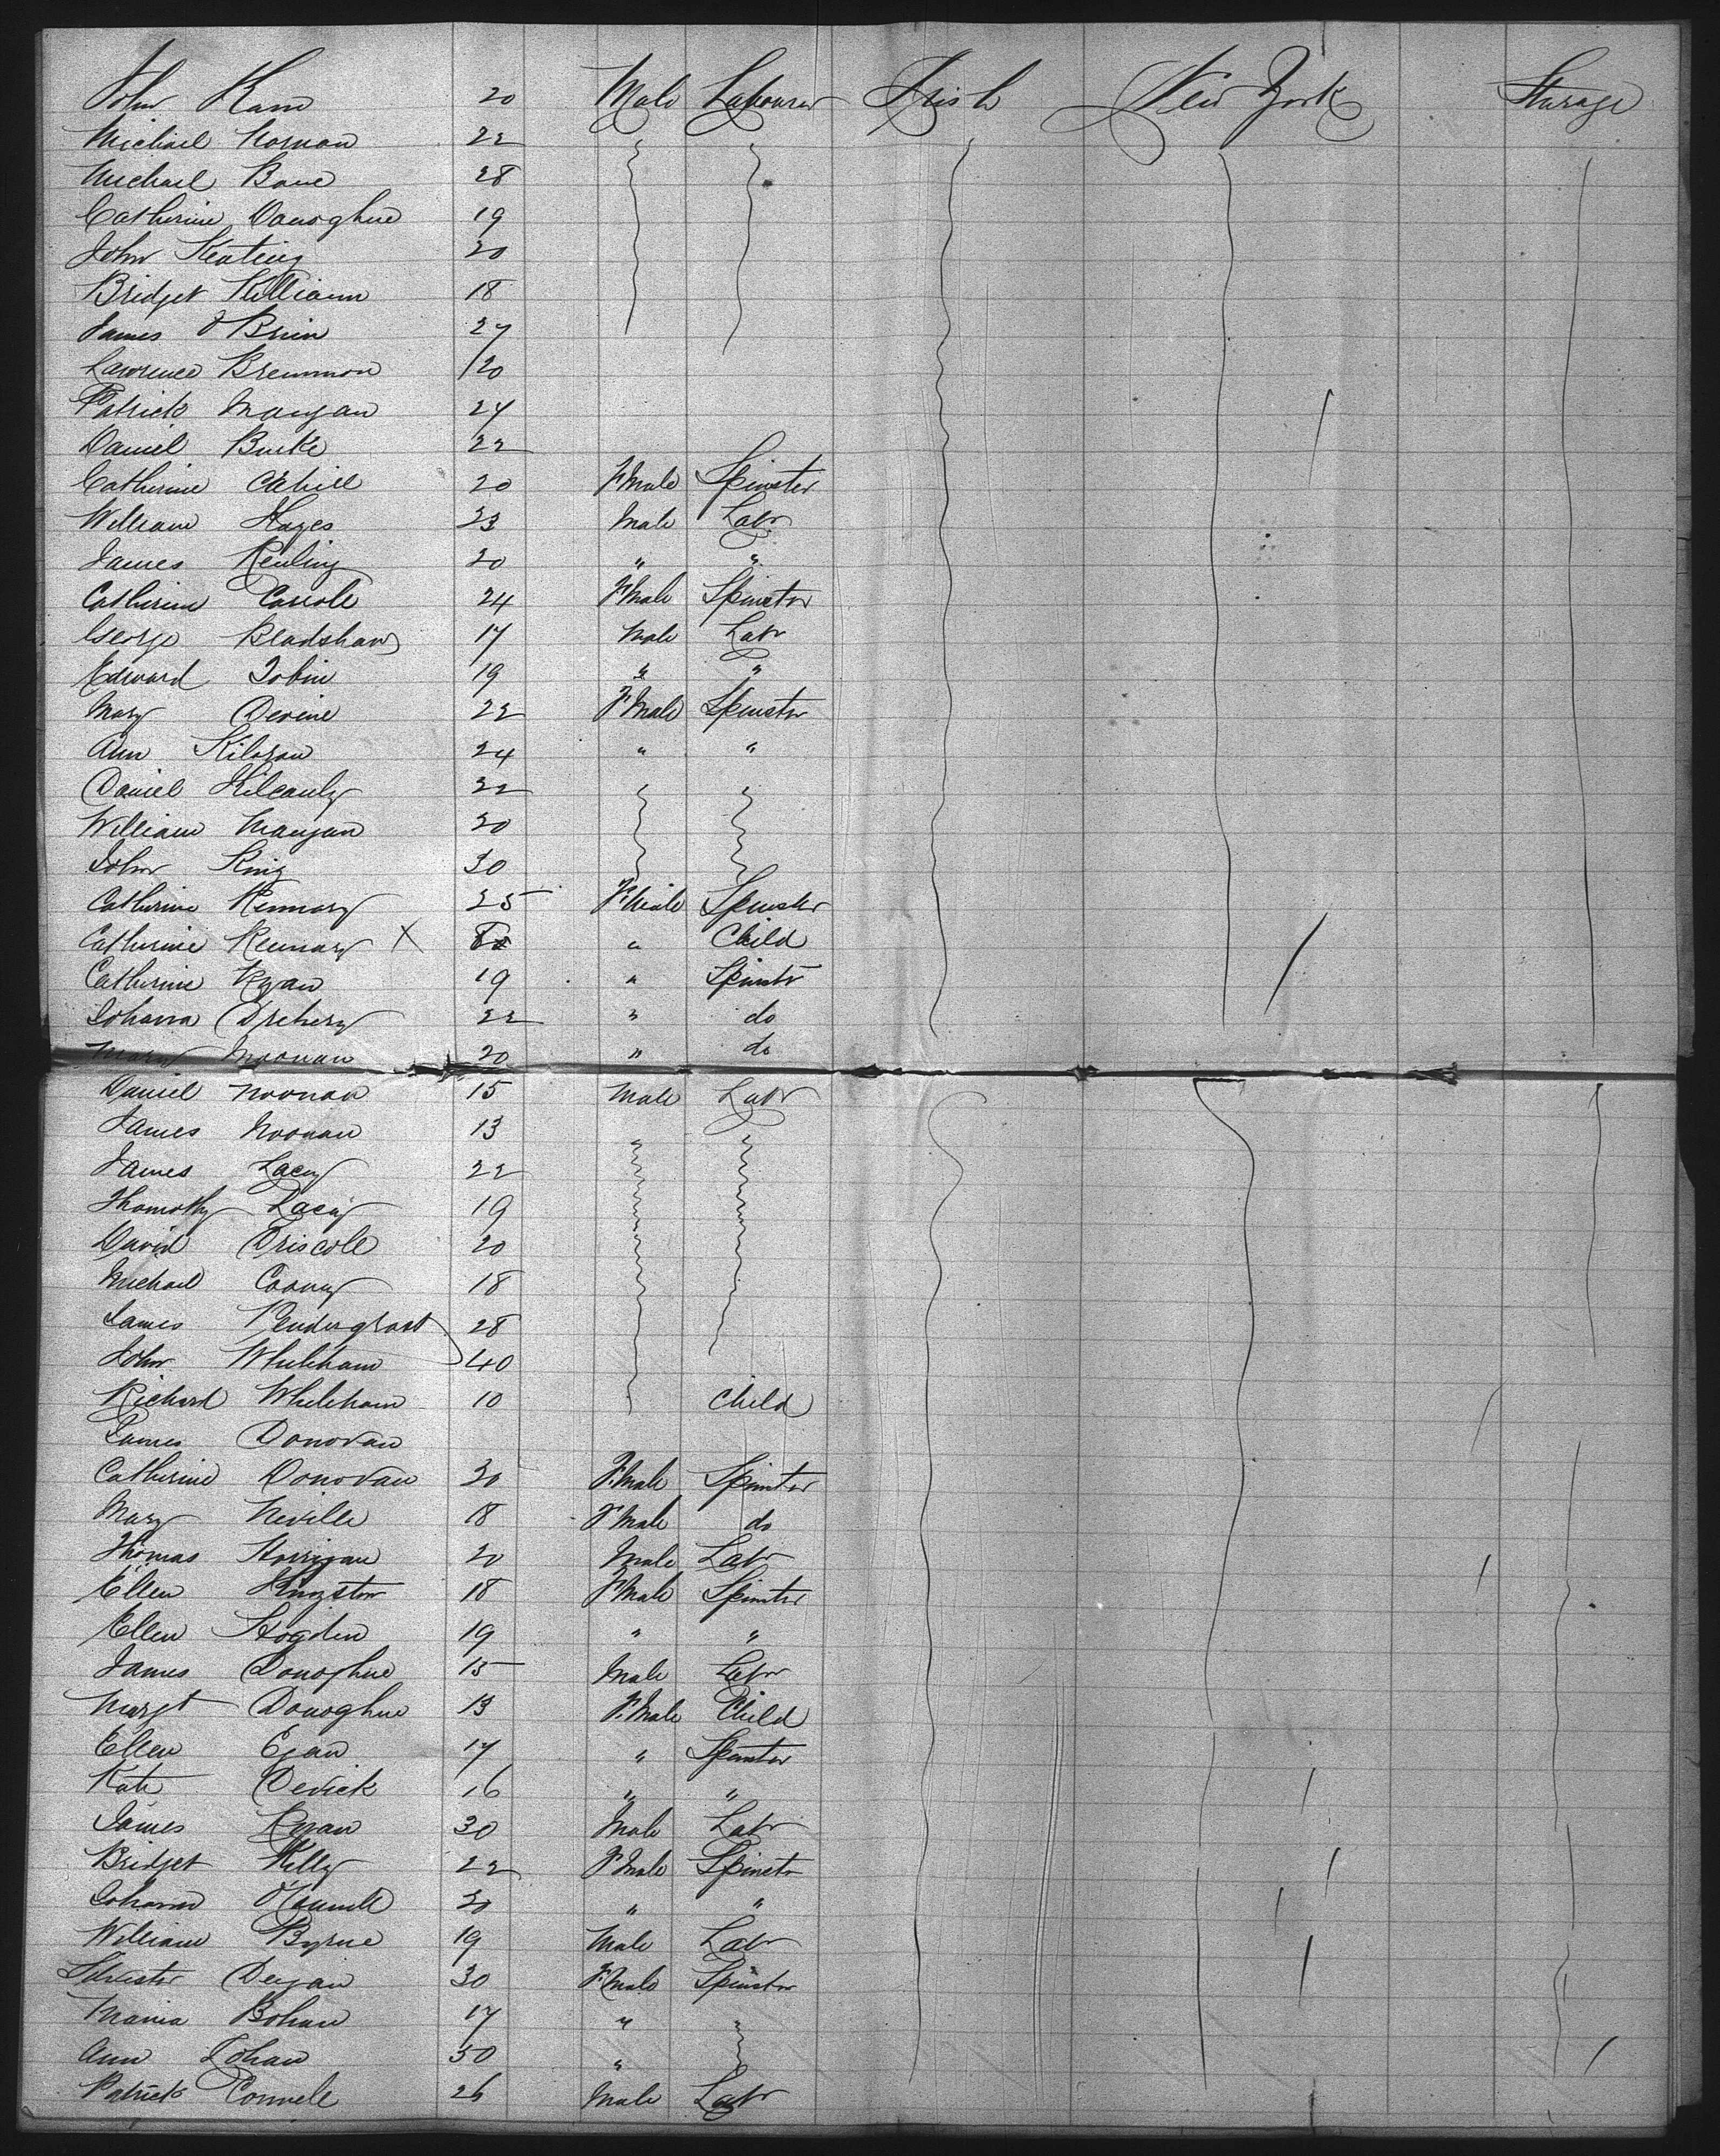 John Kane 20 Male Labourer Irish New York Sturage
Michael Hornan 22
Michael Bane 28
Catherine Donoghue 19
John Keating 20
Bridget Killiann 18
James O'Brien 27
Lawrence Brennnon 20
Patrick Mangan 27
Daniel Burke 22
Catherine Cahill 20 F.Male Spinster
William Hayes 23 Male Labr
James Kenling 20 " "
Catherine Carrole 24 F.Male Spinster
George Bladshaw 17 Male Labr
Edward Tobin 19 " "
Mary Devine 22 F.Male Spinster
Ann Kiloran 24 " "
Daniel Kilcauly 22
William Mangan 20
John King 30
Catherine Kennary 25 F.Male Spinster
Catherine Kennary X " Child
Catherine Ryan 19 " Spinstr
Johanna 22 " do
Mary Noonan 20 " do
Daniel Noonan 15 Male Labr
James Noonan 13
James Lacey 22
Thomothy Lacey 19
David Driscole 20
Michael Cooney 18
James Pendergrast 28
John Whelehan 40
Richard Whelehan 10 Child
James Donovan
Catherine Donovan 30 F.Male Spinster
Mary Neville 18 F.Male do
Thomas Horrigan 20 Male Labr
Ellen Kingston 18 F.Male Spinster
Ellen Hogden 19 " "
James Donoghue 15 Male Labr
Margt Donoghue 13 F.Male Child
Ellen Egan 17 " Spinster
Kate Derick 16 " "
James Ryan 30 Male Labr
Bridget Kelly 22 F.Male Spinstr
Johanna 20 " "
William Byrne 19 Male Labr
Silvester Degan 30 F.Male Spinster
Maria Bohan 17 "
Ann Bohan 50 "
Patrick Connele 26 Male Labr